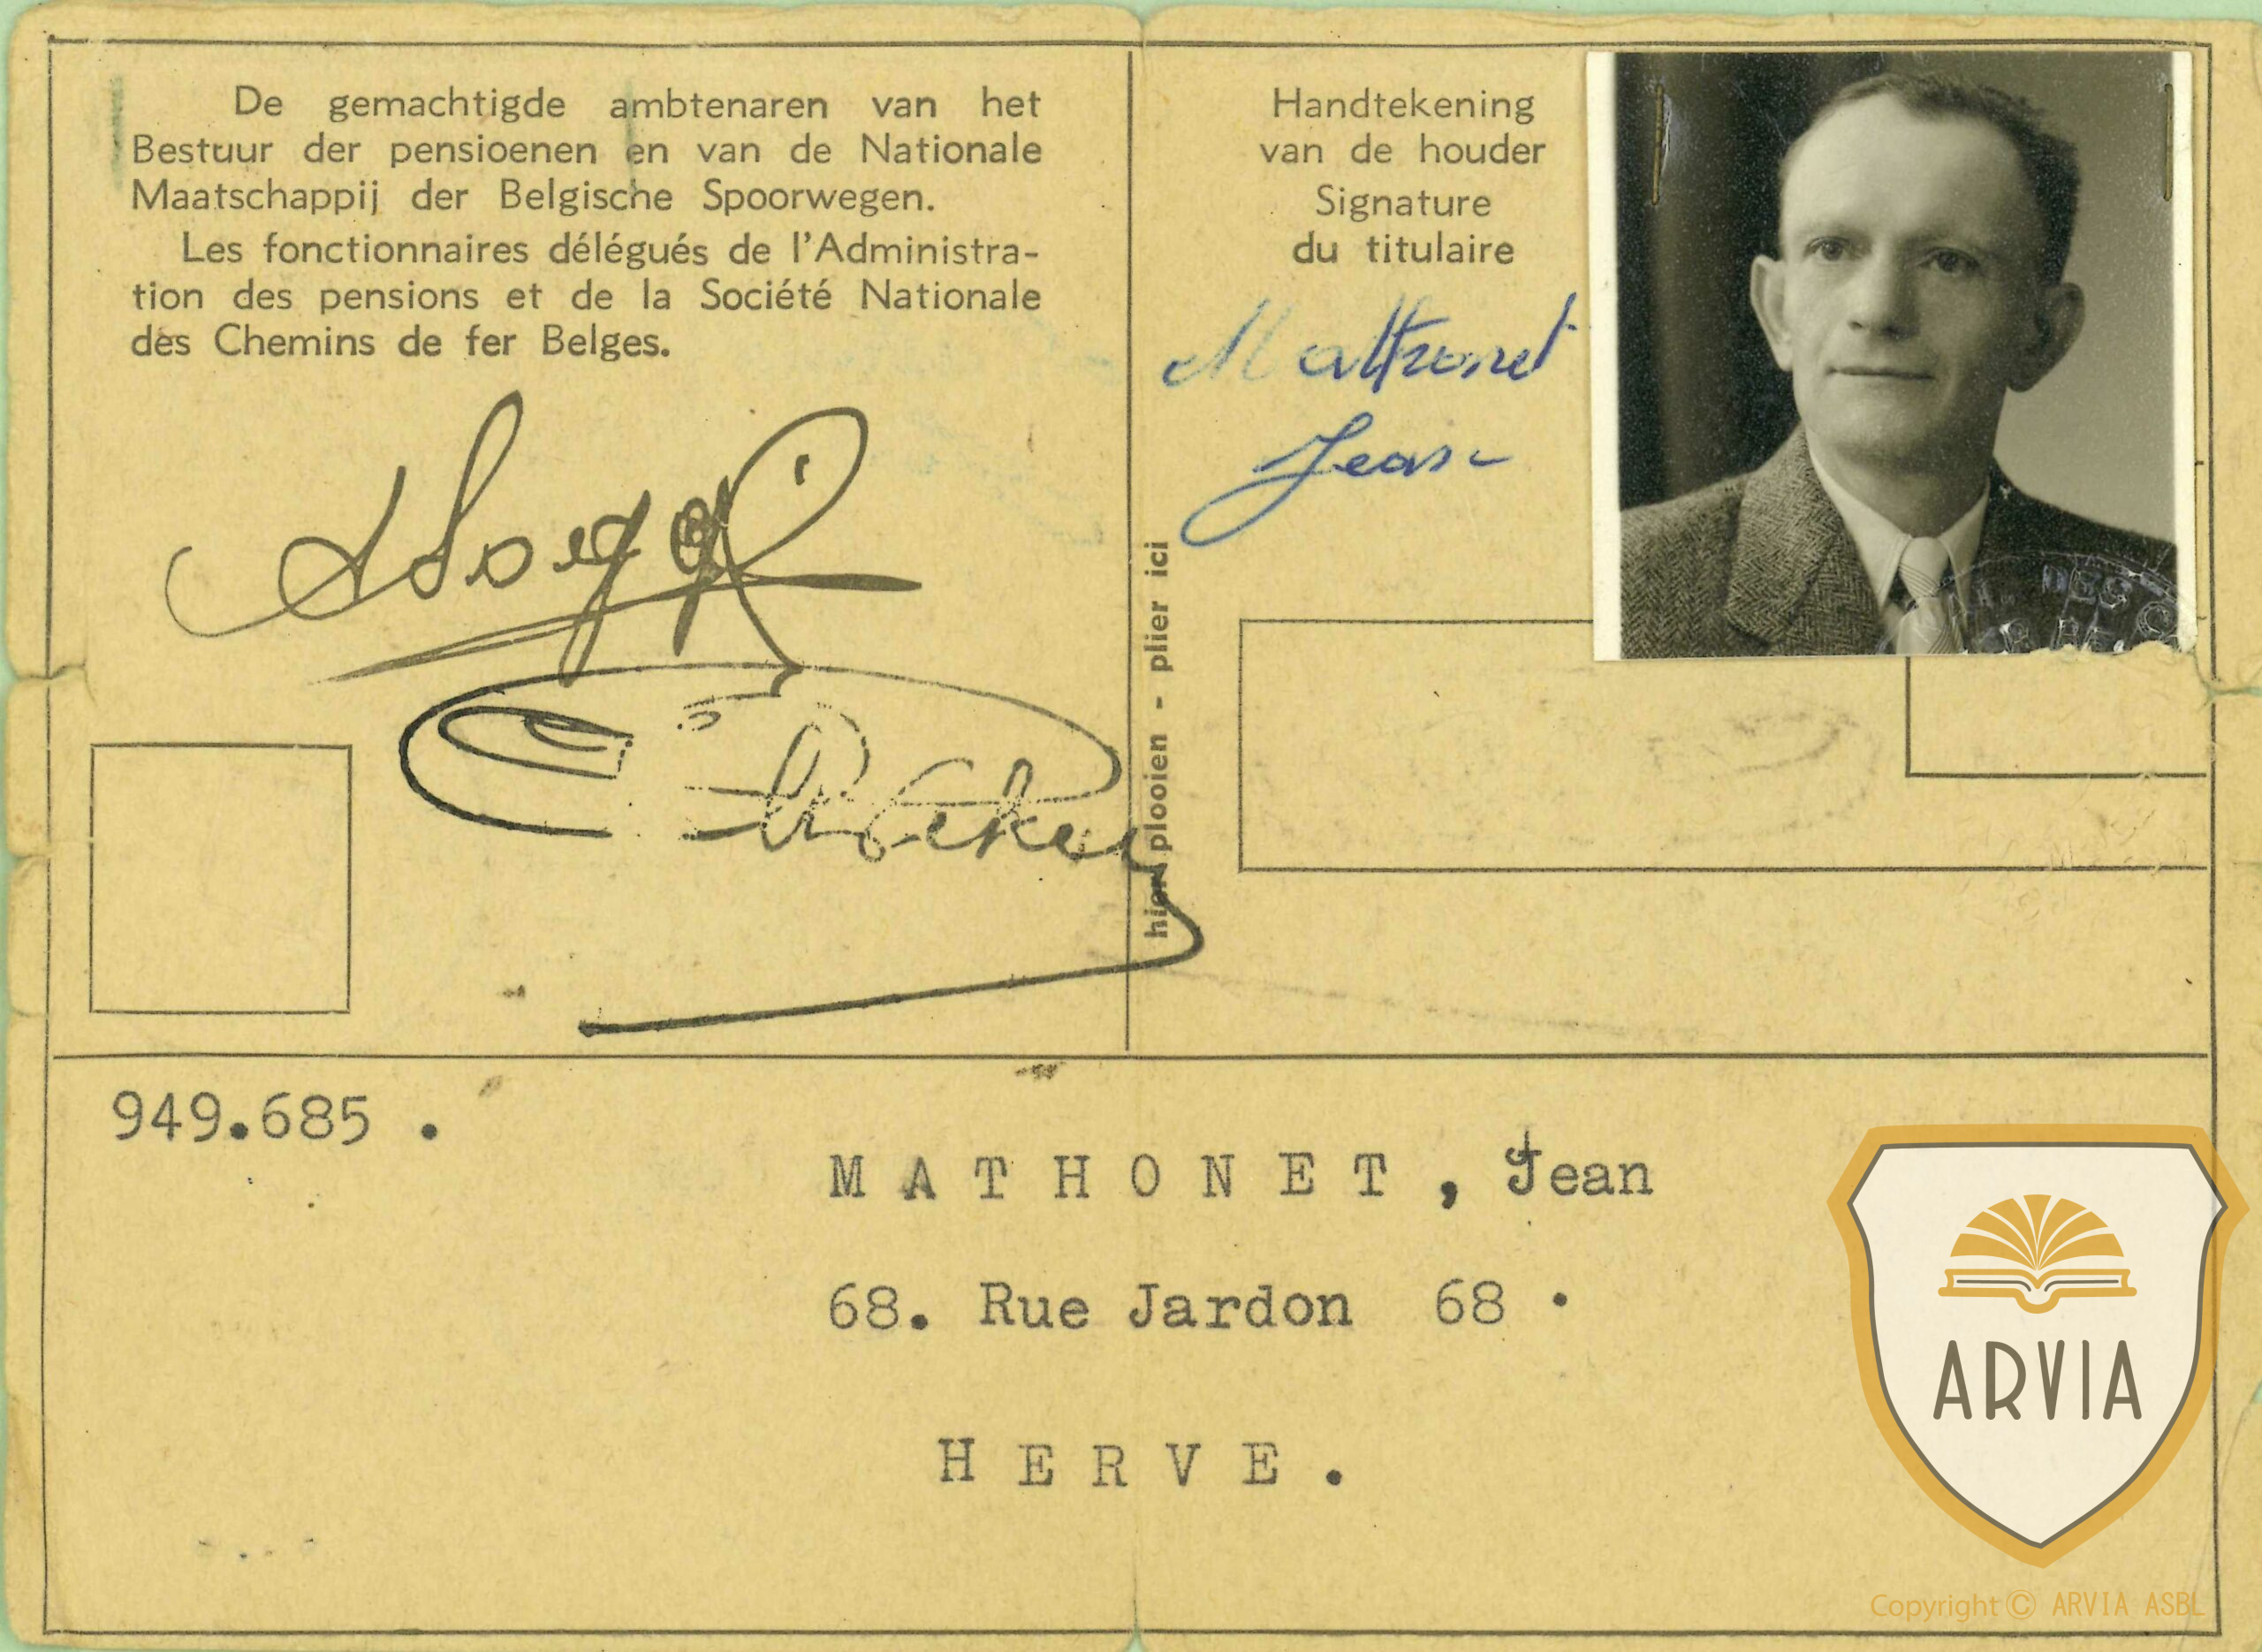 De gemachtigde ambtenaren van het
Bestuur der pensioenen en van de Nationale
Maatschappij der Belgische Spoorwegen.
Les fonctionnaires délégués de l'Administra-
tion des pensions et de la Société Nationale
des Chemins de fer Belges.
Handtekening
van de houder
Signature
du titulaire
Mathonet
Jean
hier plooien - plier ici
949.685 .
MATHONET, Jean
68. Rue Jardon 68 .
HERVE.
ARVIA
Copyright © ARVIA ASBL